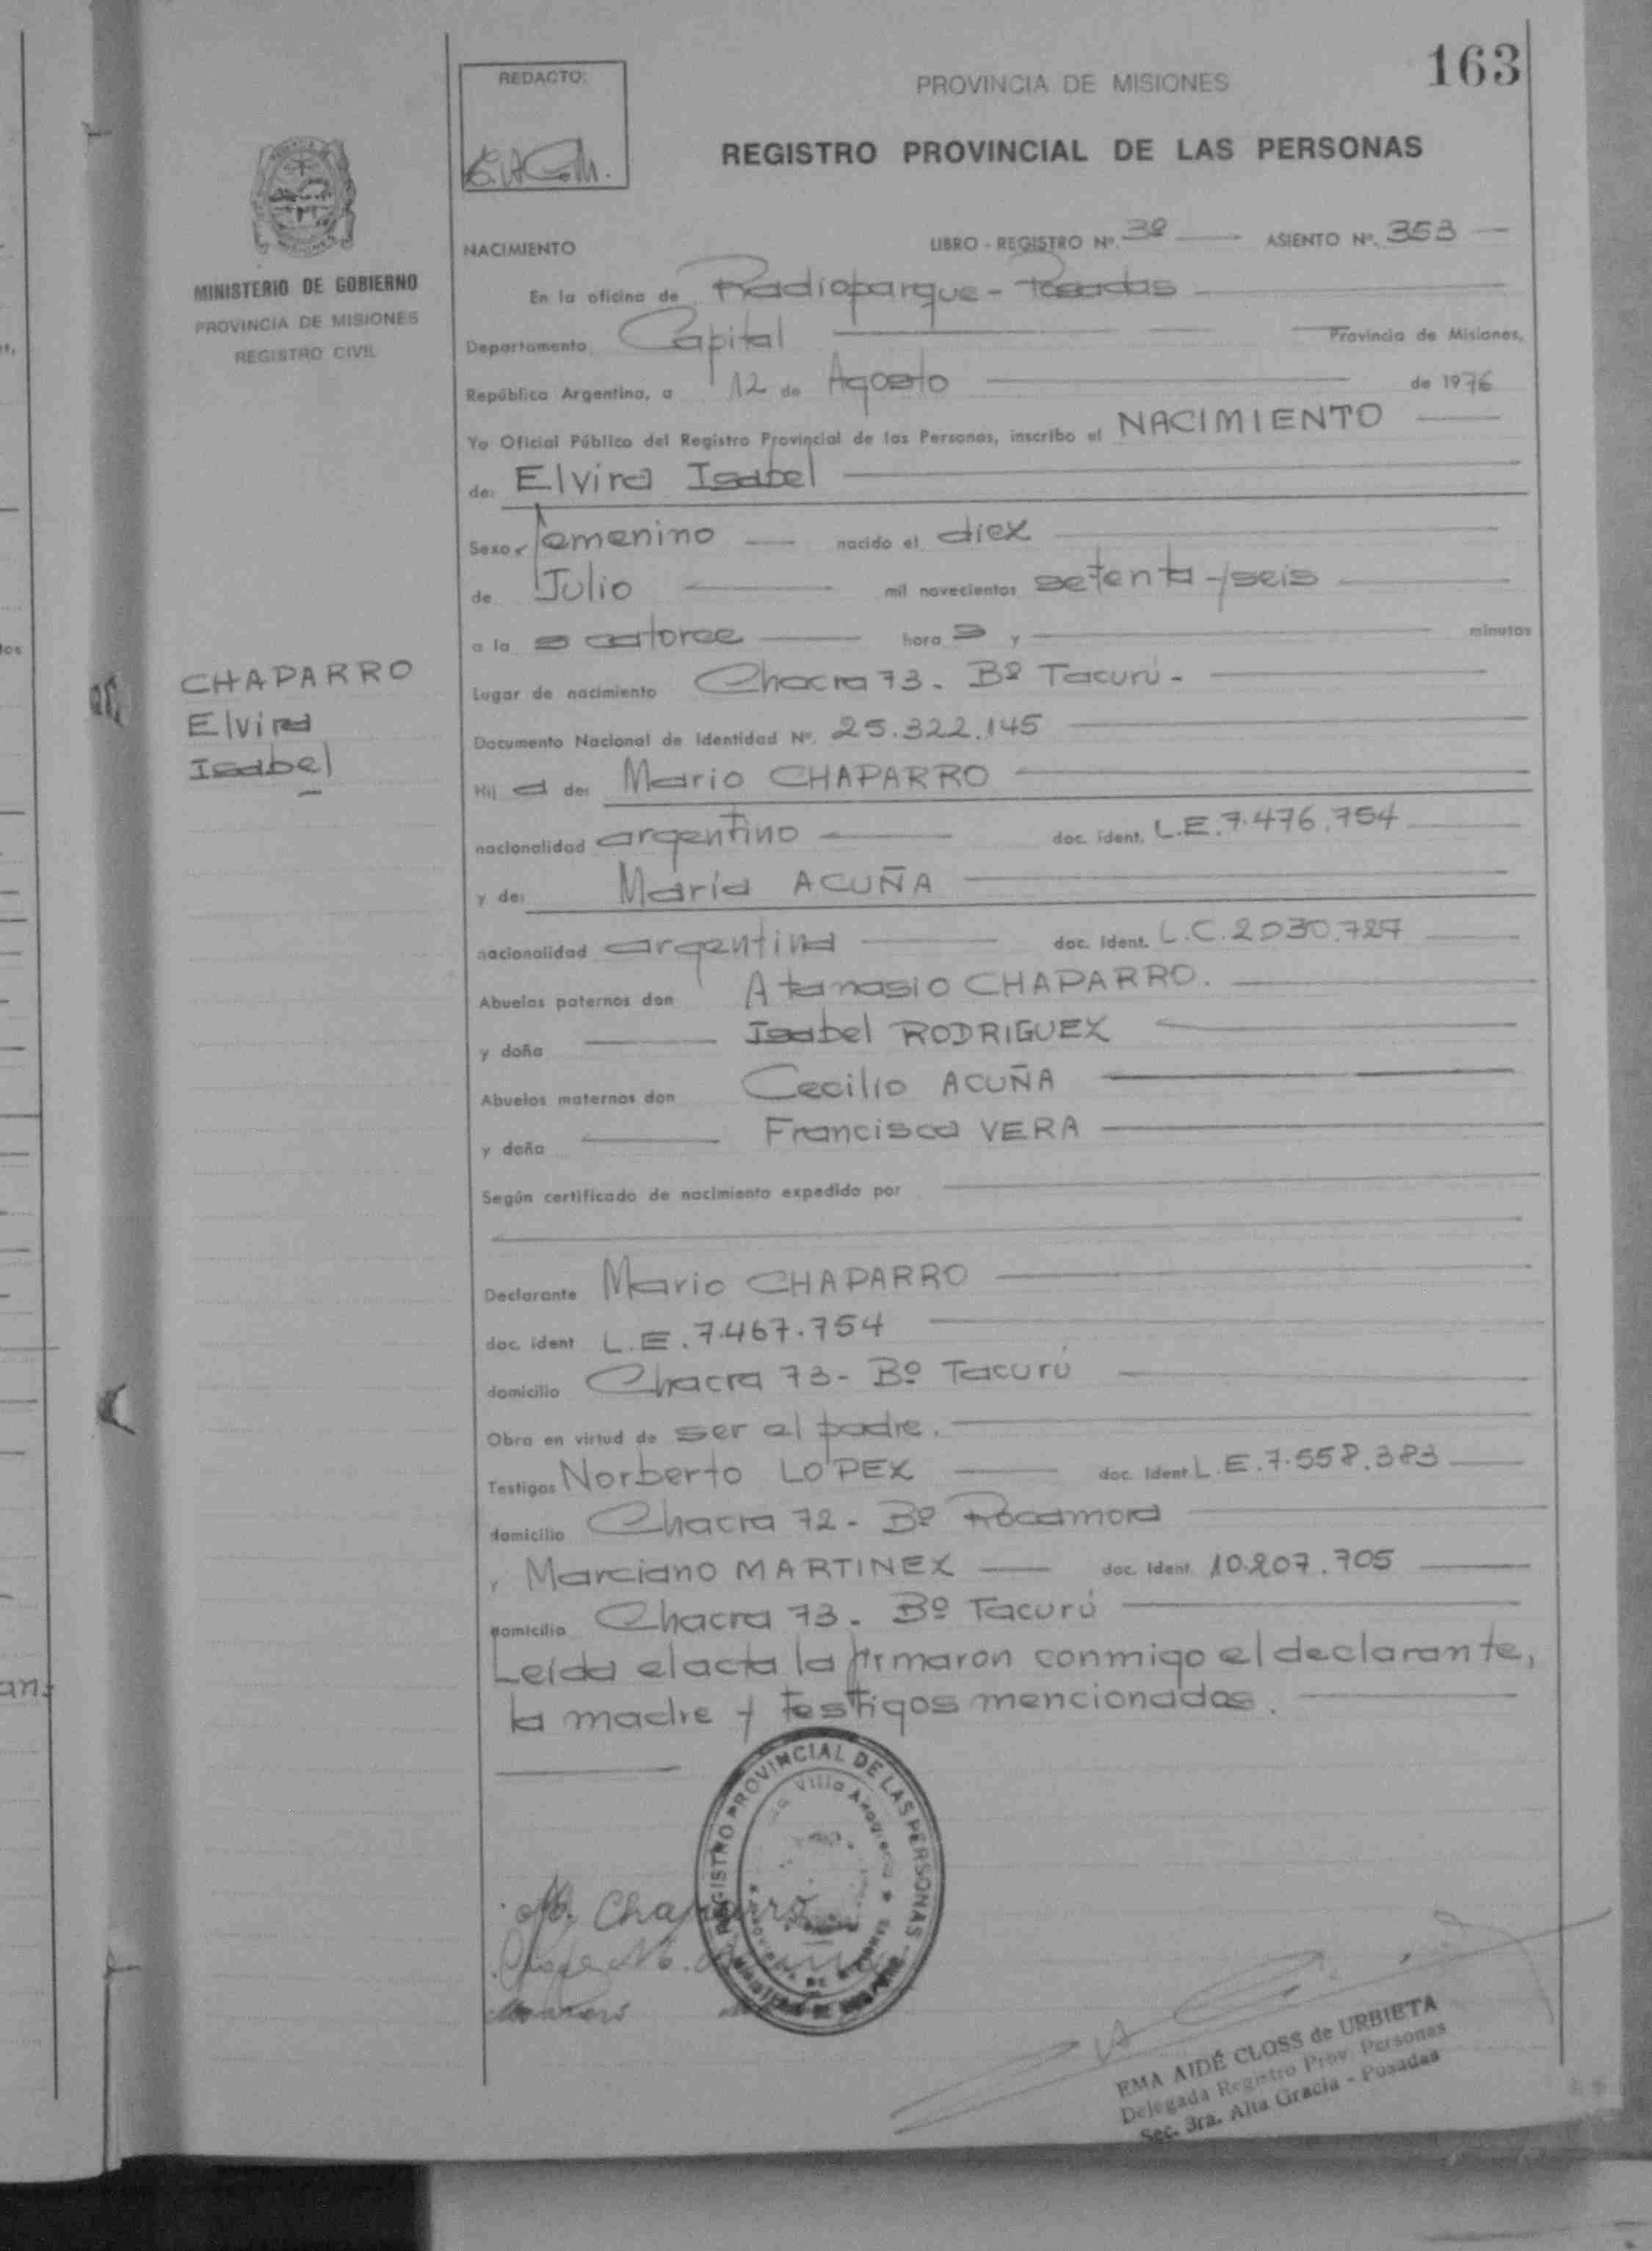 163
REDACTO:
PROVINCIA DE MISIONES
REGISTRO PROVINCIAL DE LAS PERSONAS
MINISTERIO DE GOBIERNO
PROVINCIA DE MISIONES
REGISTRO CIVIL
NACIMIENTO LIBRO - REGISTRO Nº. 3º ASIENTO Nº. 353
En la oficina de Radioparque - Posadas
Departamento Capital Provincia de Misiones,
República Argentina, a 12 de Agosto de 1976
Yo Oficial Público del Registro Provincial de las Personas, inscribo el NACIMIENTO
de: Elvira Isabel
Sexo femenino nacido el diez
de Julio mil novecientos setenta y seis
a la s catorce hora s y minutos
CHAPARRO
Elvira
Isabel
Lugar de nacimiento Chacra 73. Bº Tacurú.
Documento Nacional de Identidad Nº. 25.322.145
Hij a de: Mario CHAPARRO
nacionalidad argentino doc. ident. L.E. 7.476.754
y de: María ACUÑA
nacionalidad argentina doc. ident. L.C. 2.030.727
Abuelos paternos don Atanasio CHAPARRO.
y doña Isabel RODRIGUEZ
Abuelos maternos don Cecilio ACUÑA
y doña Francisca VERA
Según certificado de nacimiento expedido por
Declarante Mario CHAPARRO
doc. ident L.E. 7.467.754
domicilio Chacra 73 - Bº Tacurú
Obra en virtud de ser el padre.
Testigos Norberto LOPEZ doc. ident L.E. 7.558.383
domicilio Chacra 72 - Bº Rocamora
y Marciano MARTINEZ doc. ident 10.207.705
domicilio Chacra 73. Bº Tacurú
Leída el acta la firmaron conmigo el declarante,
la madre y testigos mencionados.
REGISTRO PROVINCIAL DE LAS PERSONAS
Villa
M. Chaparro
EMA AIDÉ CLOSS de URBIETA
Delegada Registro Prov. Personas
Sec. 3ra. Alta Gracia - Posadas